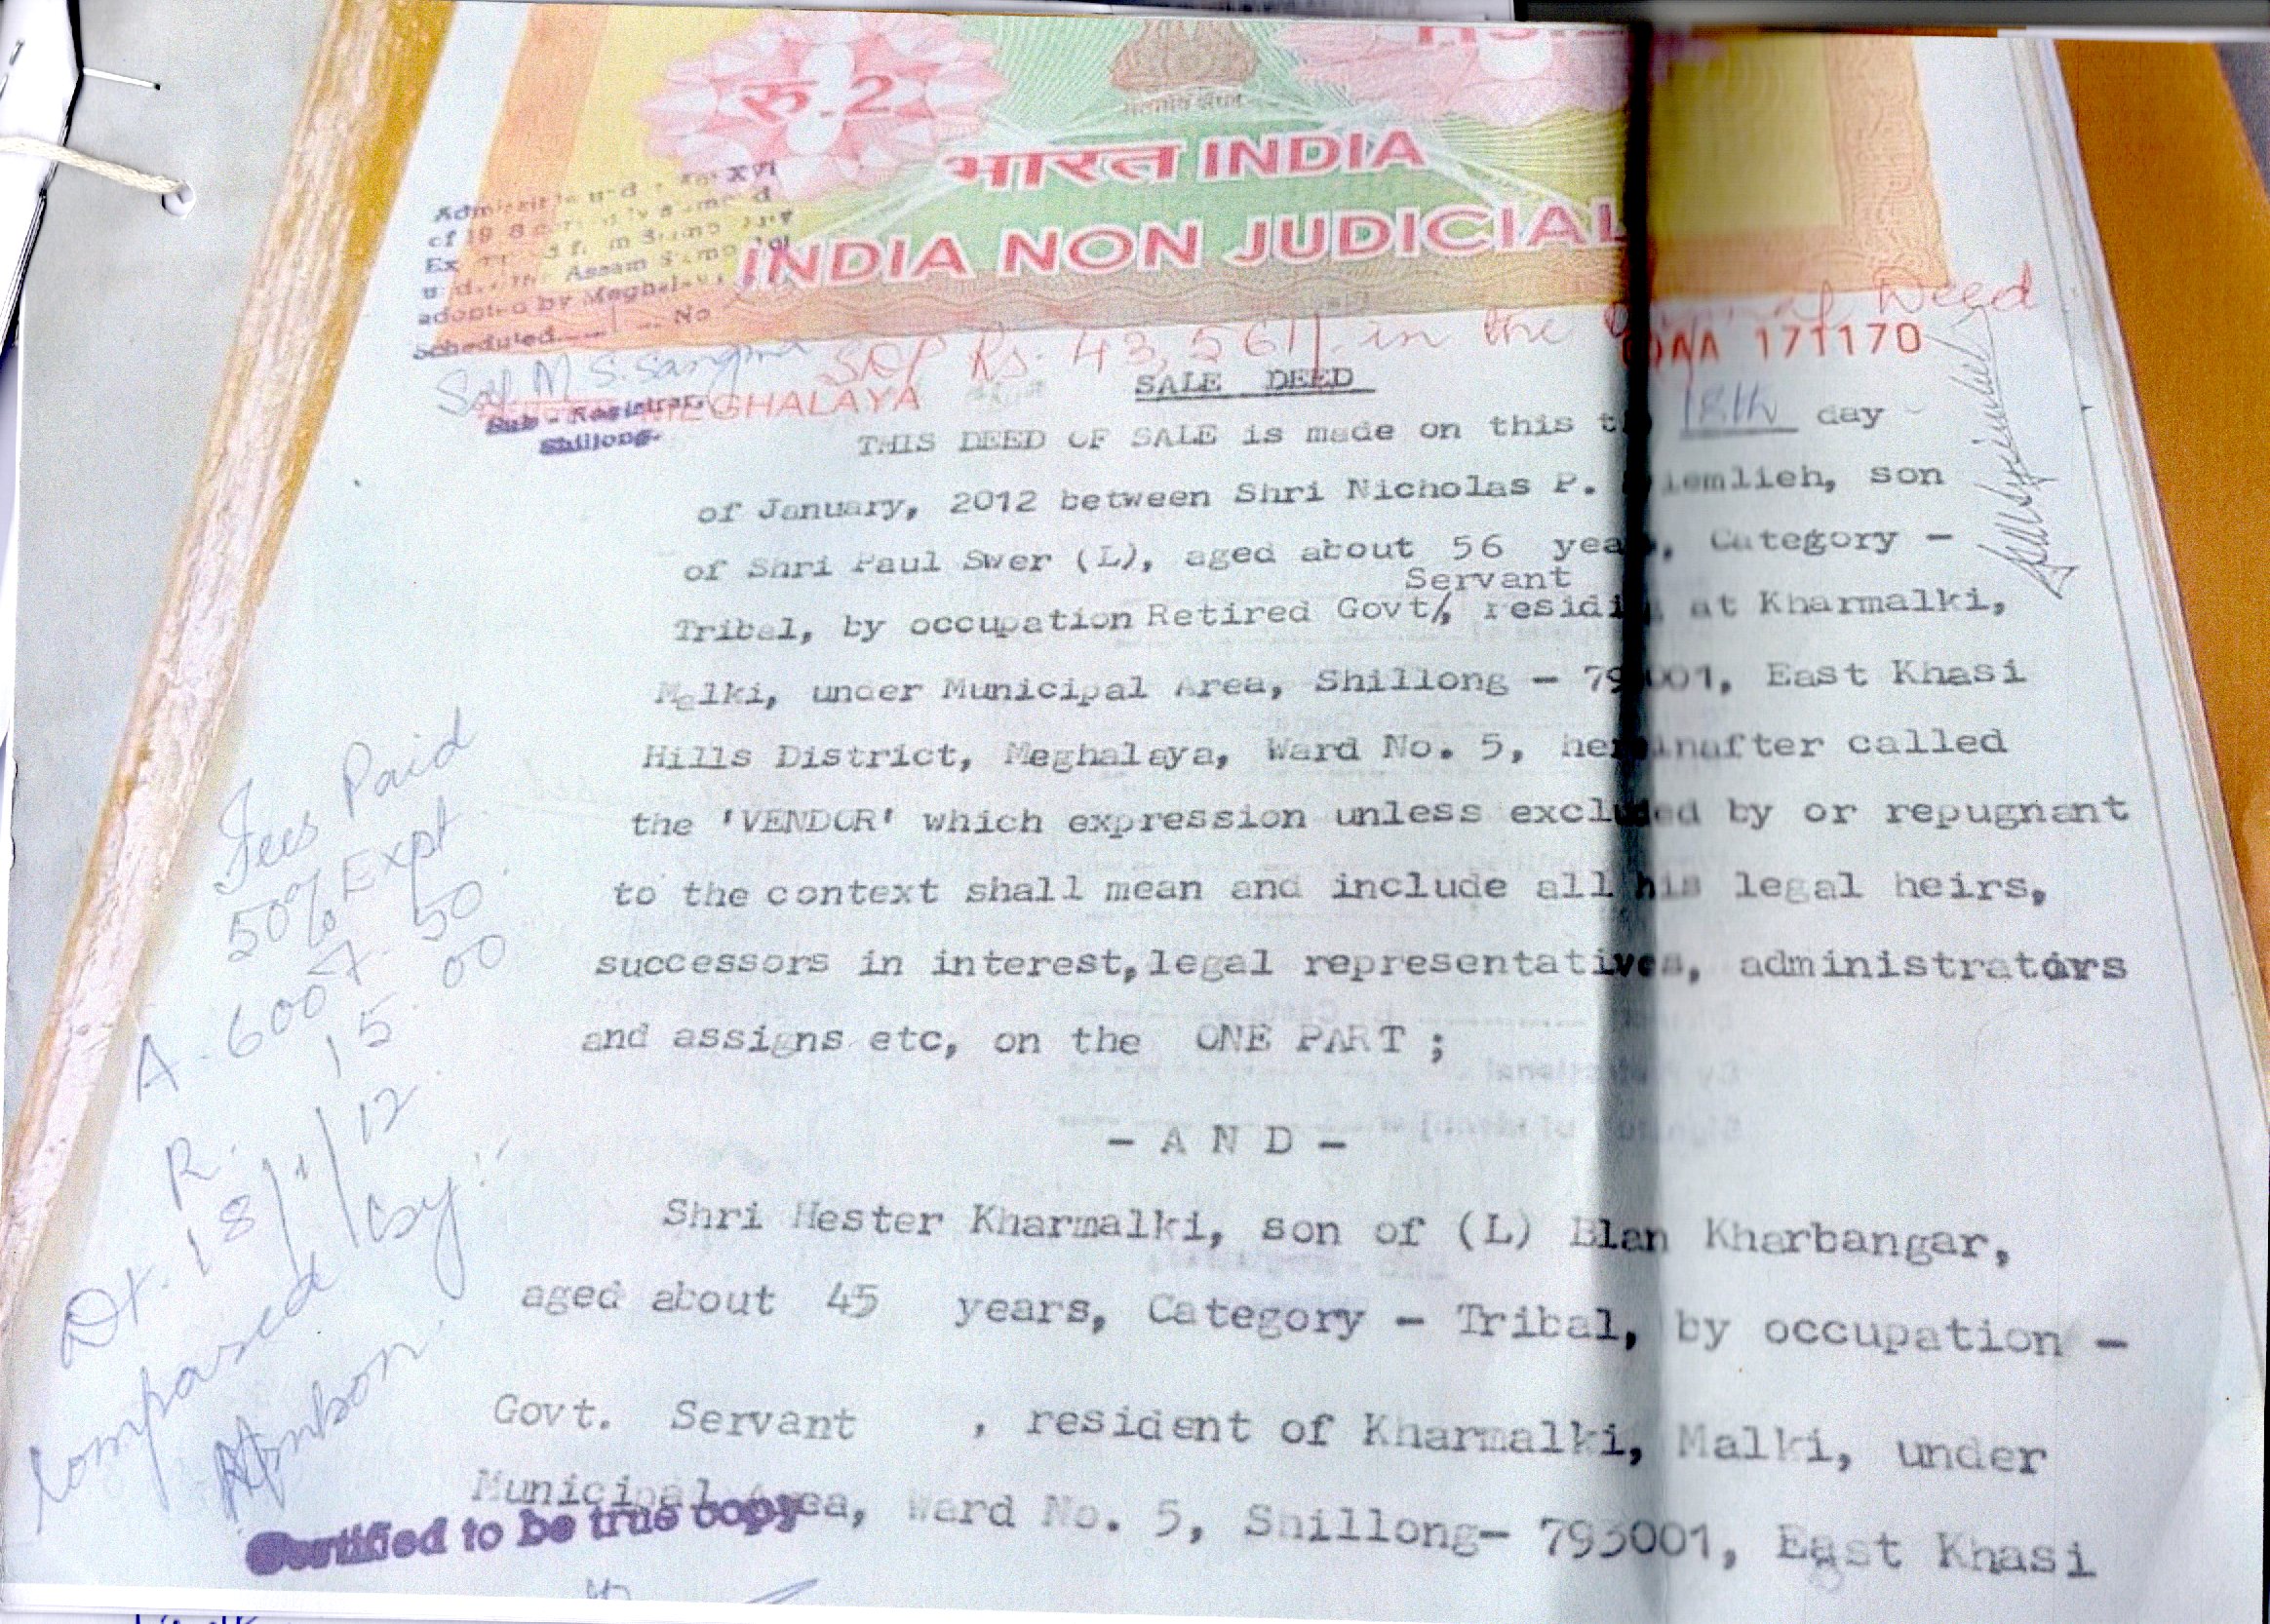 रु.2
भारत INDIA
INDIA NON JUDICIAL
of 19
Assam
adopted by Meghalaya
Scheduled No
Sd/ M S. Sangma
Sub - Registrar,
Shillong.
SDP Rs. 43,561/- in the Original Deed
MEGHALAYA
AA 171170
SALE DEED
THIS DEED OF SALE is made on this the 18th day
of January, 2012 between Shri Nicholas P. iemlieh, son
of Shri Paul Swer (L), aged about 56 years, Category -
Servant
Tribal, by occupation Retired Govt/, residing at Kharmalki,
Malki, under Municipal Area, Shillong - 793001, East Khasi
Hills District, Meghalaya, Ward No. 5, hereinafter called
the 'VENDOR' which expression unless excluded by or repugnant
to the context shall mean and include all his legal heirs,
successors in interest, legal representatives, administrators
and assigns etc, on the ONE PART ;
- A N D -
Shri Hester Kharmalki, son of (L) Blan Kharbangar,
aged about 45 years, Category - Tribal, by occupation -
Govt. Servant , resident of Kharmalki, Malki, under
Municipal Area, Ward No. 5, Shillong- 793001, East Khasi
Fees Paid
50% Expt
A. 6007. 50
R. 15. 00
Dt. 18/1/12
Compared by:-
Certified to be true copy